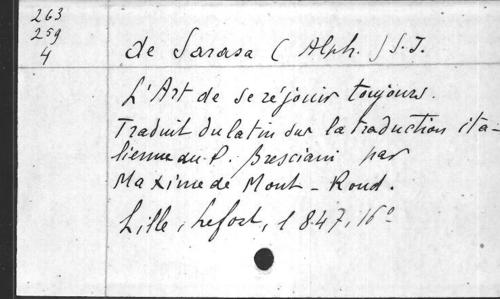 263
259
4
de Sarasa (Alph.) S.J.
L'Art de se réjouir toujours.
Traduit du latin sur la traduction ita-
lienne du P. Bresciani par
Maxime de Mont-Rond.
Lille, Lefort, 1847, 16º